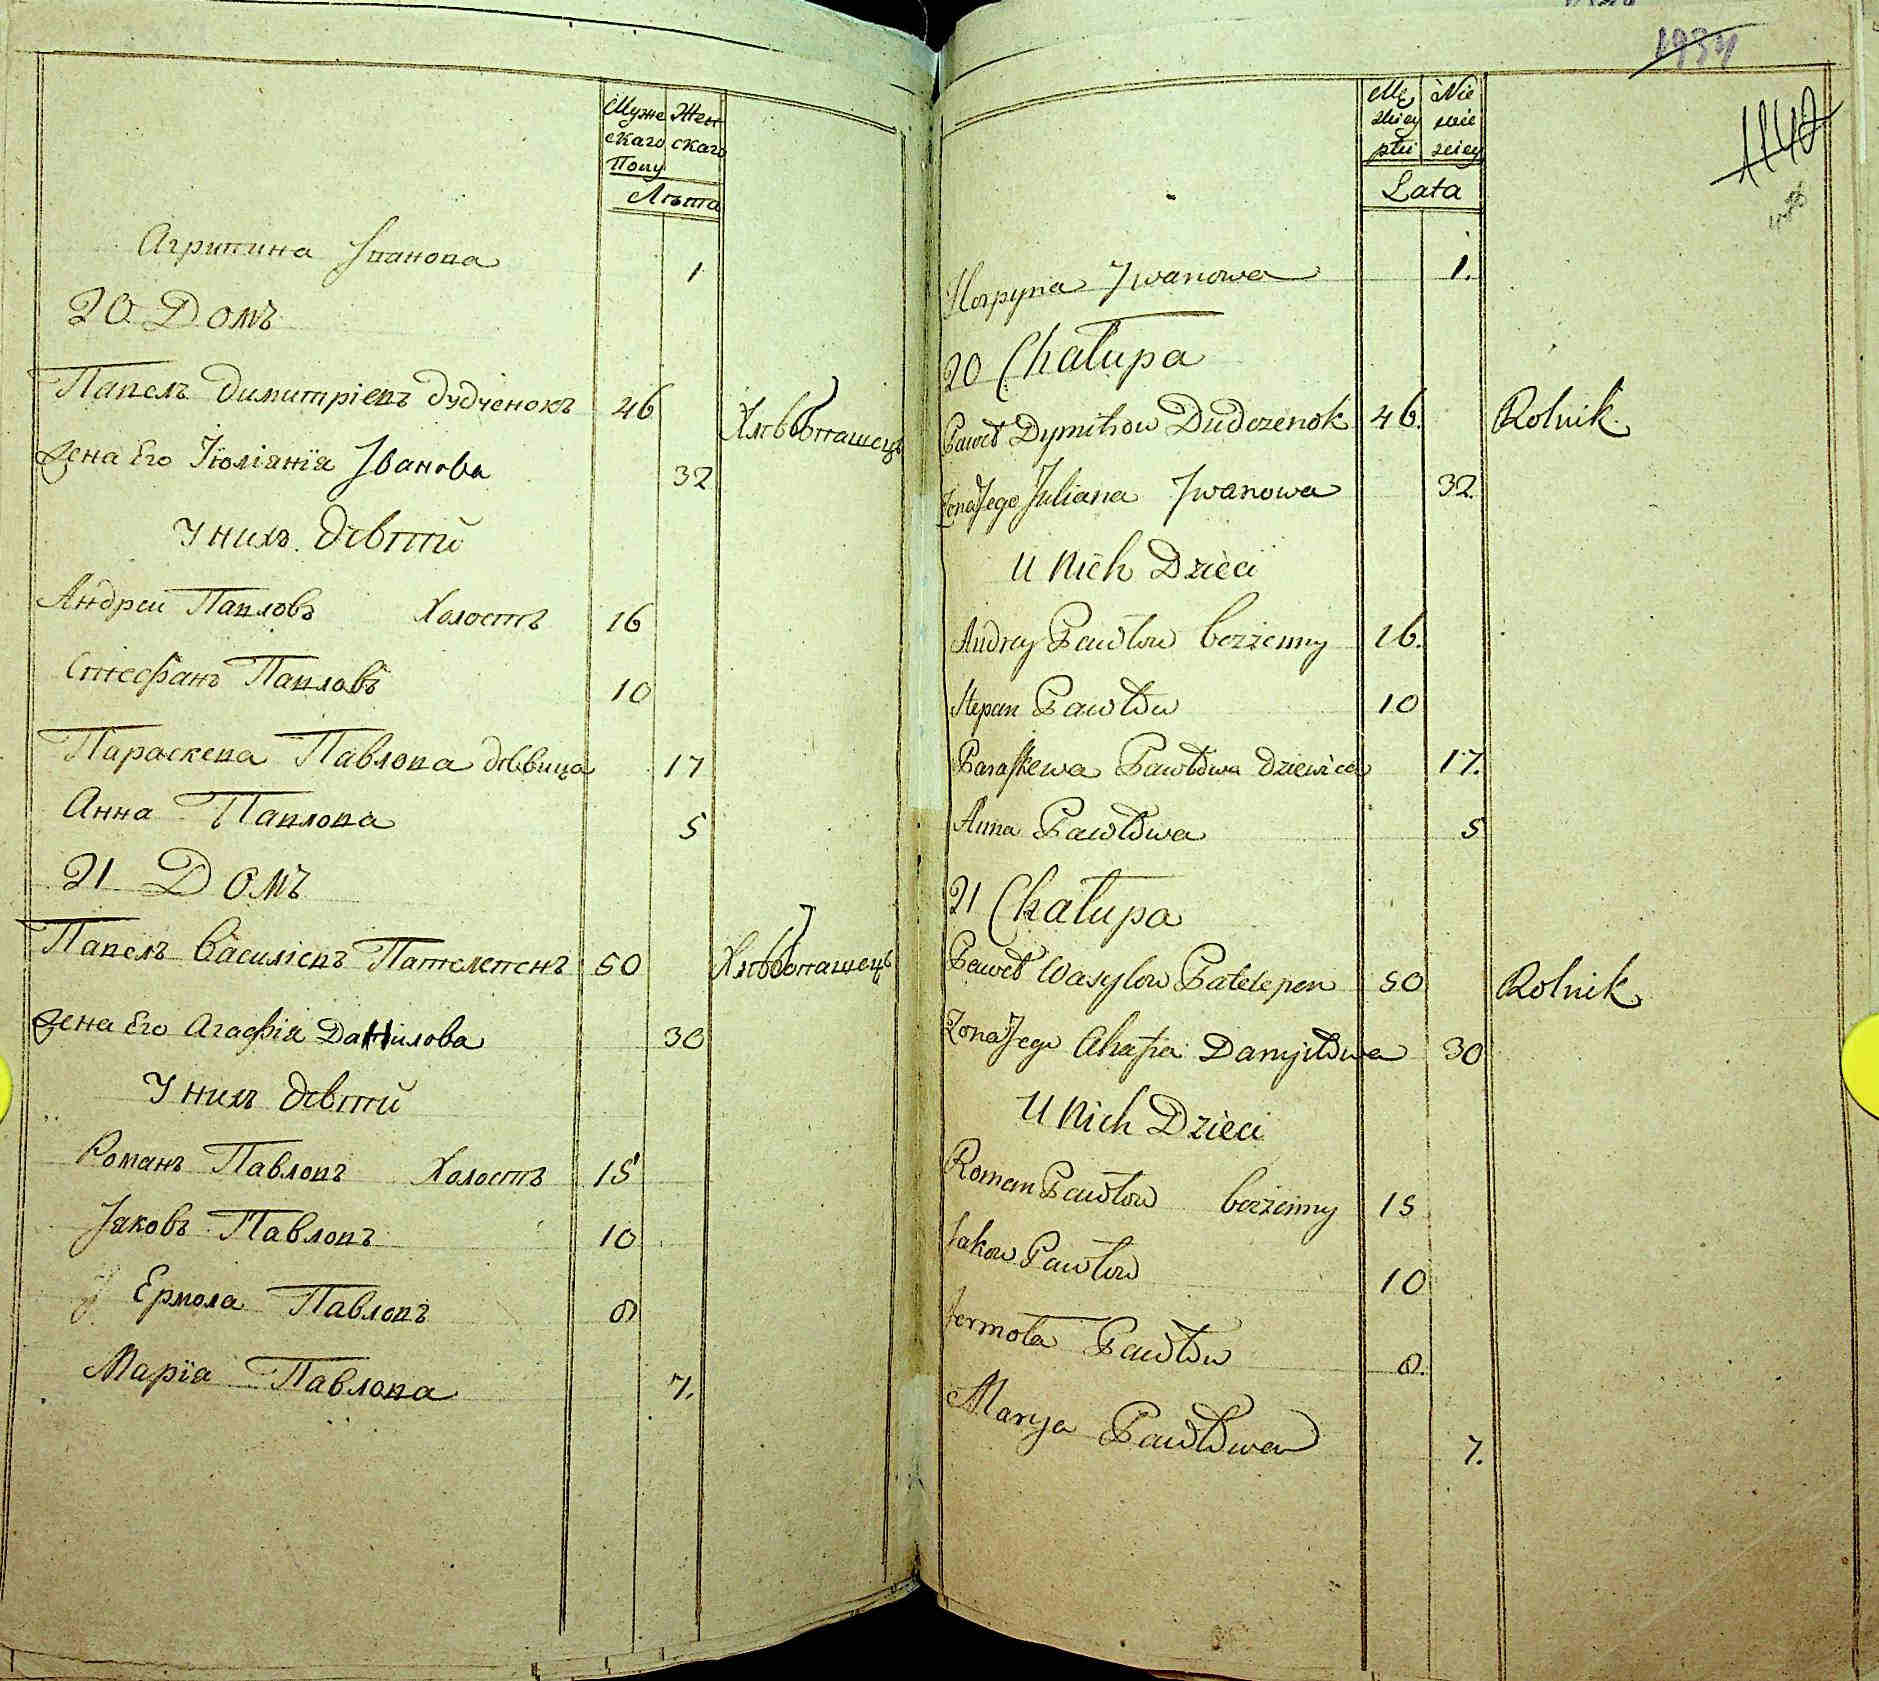 Муже Жен
скаго скаго
Полу
Лѣта
Агрипина Іванова 1
20 Домъ
Павелъ Димитріевъ Дудченокъ 46 Хлѣбопашецъ
Жена Его Іюліанія Іванова 32
У нихъ дѣтти
Андреи Павловъ Холостъ 16
Стефанъ Павловъ 10
Параскева Павлова дѣвица 17
Анна Павлова 5
21 Домъ
Павелъ Василіевъ Пателепенъ 50 Хлѣбопашецъ
Жена Его Агафія Данилова 30
У нихъ дѣтти
Романъ Павловъ Холостъ 15
Іаковъ Павловъ 10
Ермола Павловъ 8
Марія Павлова 7.
1934
1140
Lata
Horpyna Jwanowa 1.
20 Chałupa
Paweł Dymitrow Dudczenok 46. Rolnik.
Żona Jego Juliana Jwanowa 32
U Nich Dzieci
Andrey Pawłow bezżenny 16.
Stepan Pawłow 10
Paraskewa Pawłowa dziewica 17.
Anna Pawłowa 5
21 Chałupa
Paweł Wasylow Patelepen 50 Rolnik
Żona Jego Ahafia Danyłowa 30
U Nich Dzieci
Roman Pawłow bezżenny 15
Jakow Pawłow 10
Jermoła Pawłow 8.
Marya Pawłowa 7.